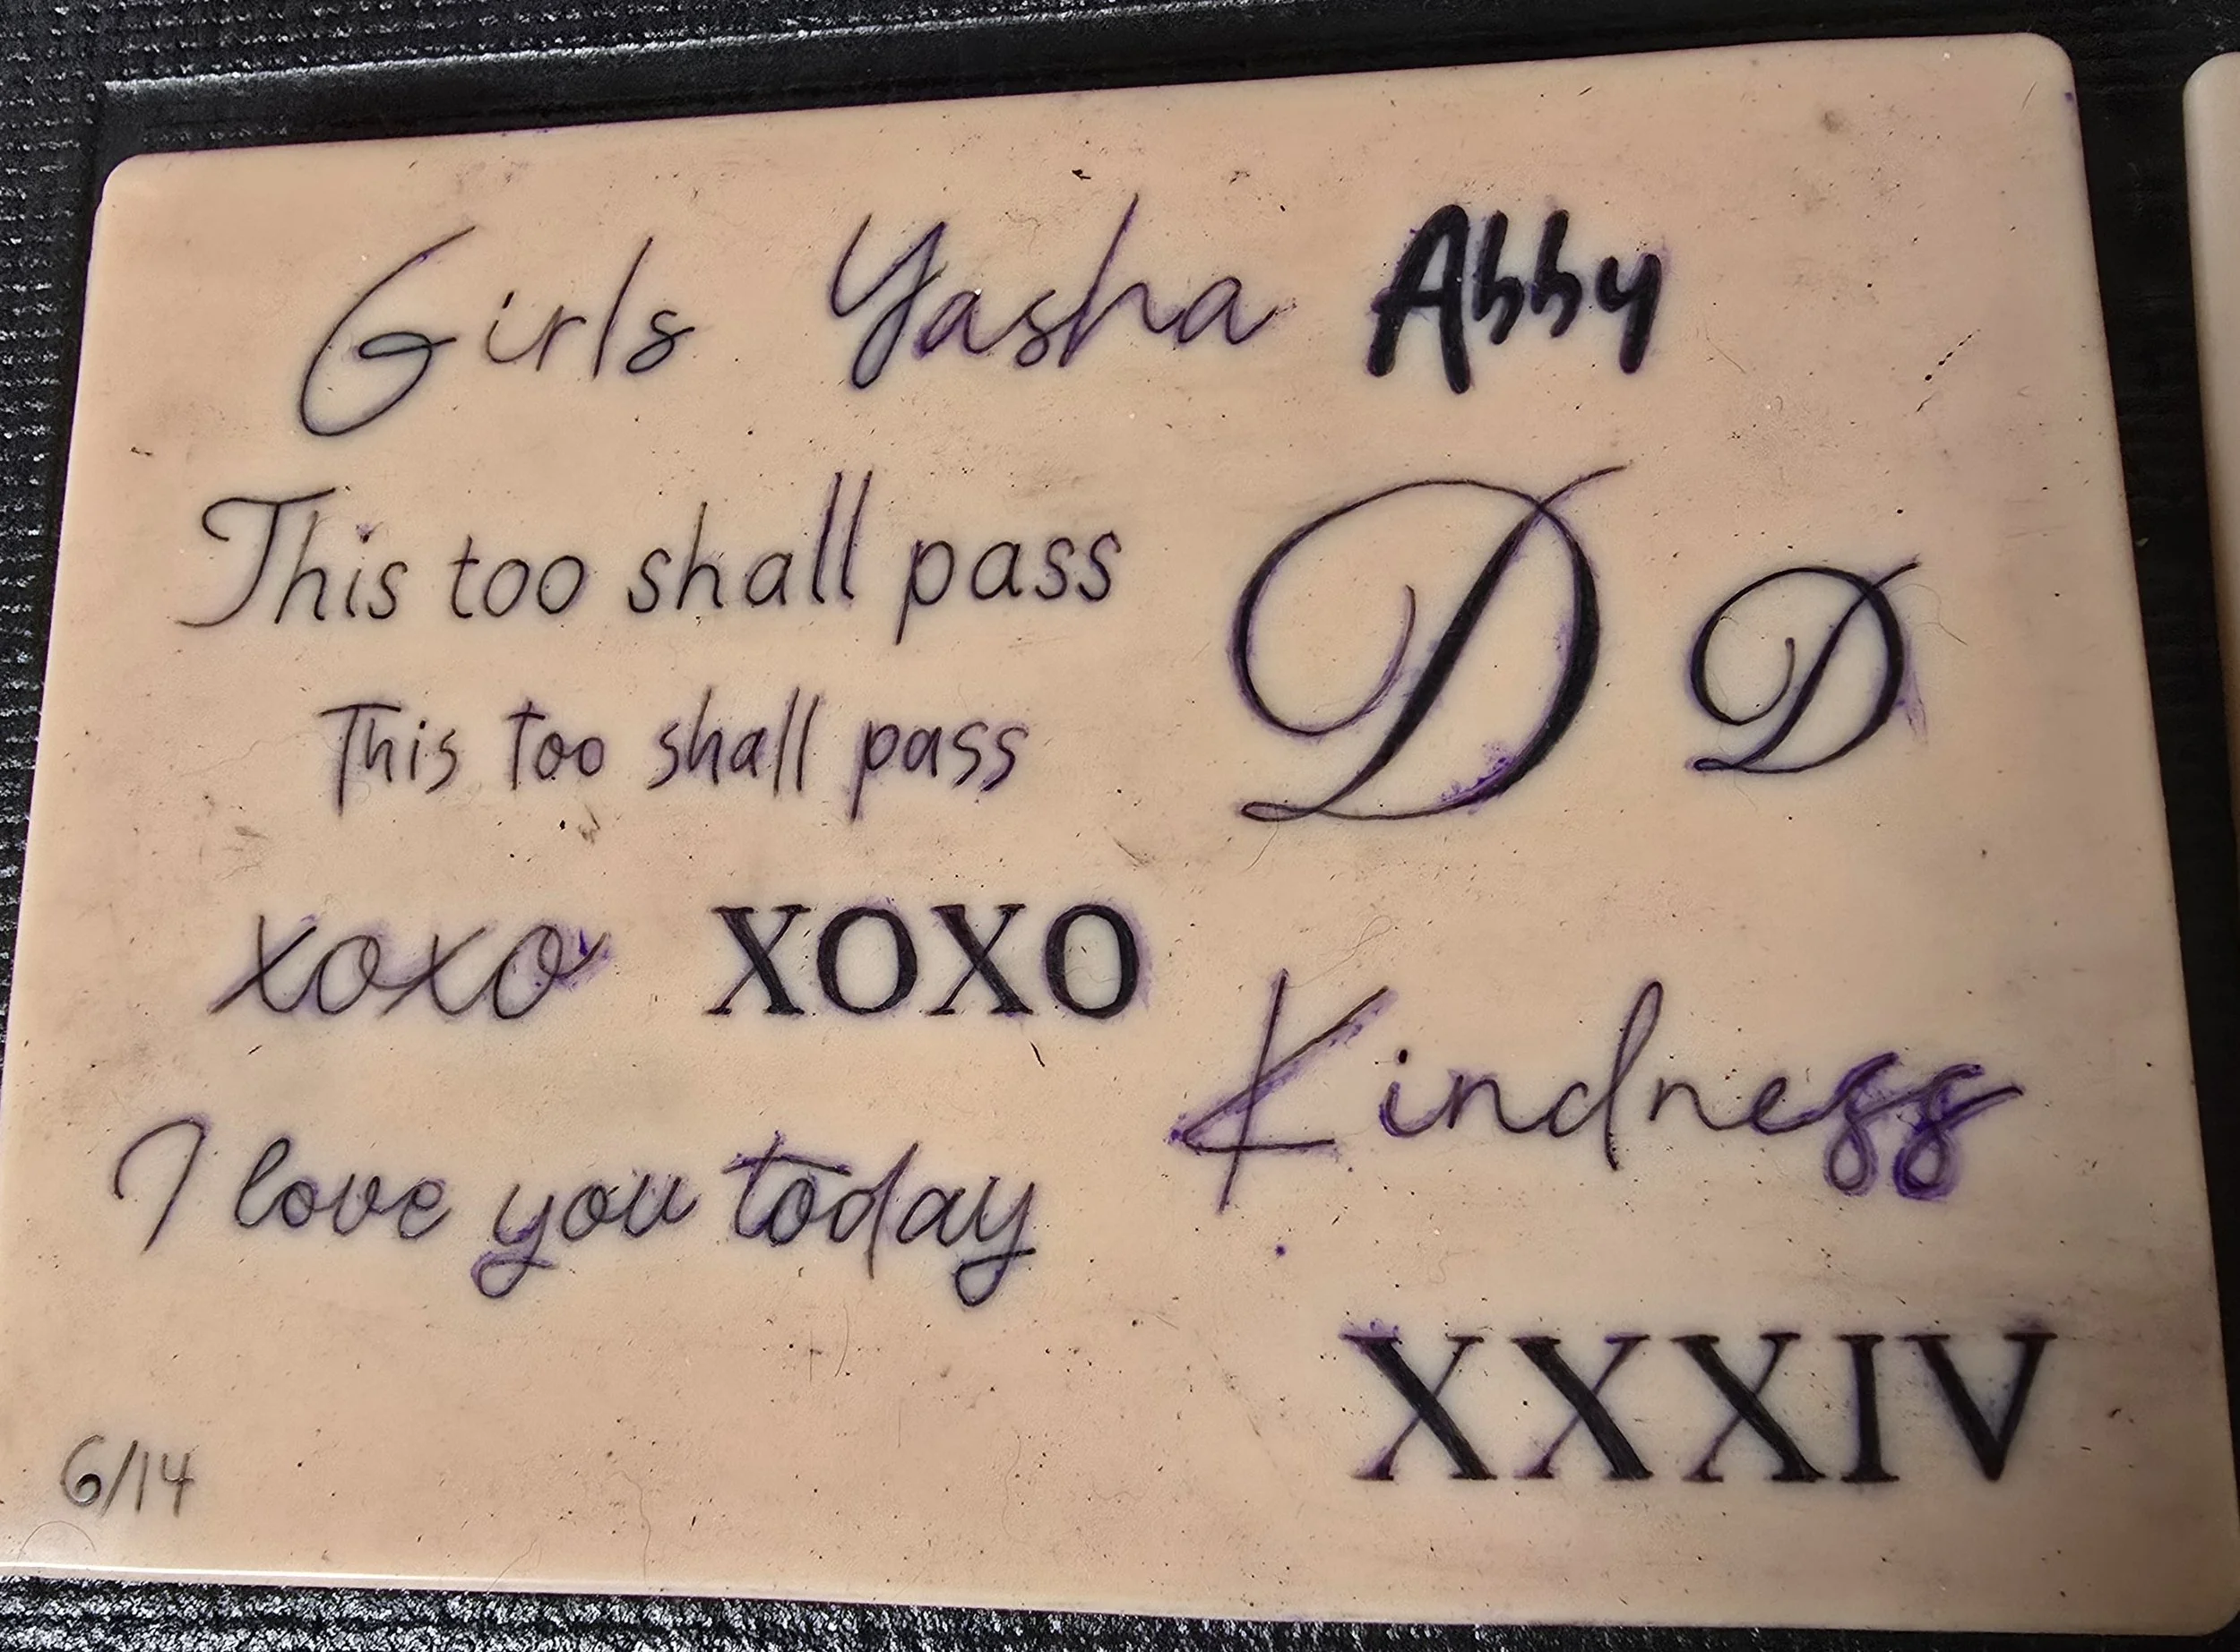 Girls Yasha Abby
This too shall pass
D D
This too shall pass
xoxo XOXO
Kindness
I love you today
XXXIV
6/14